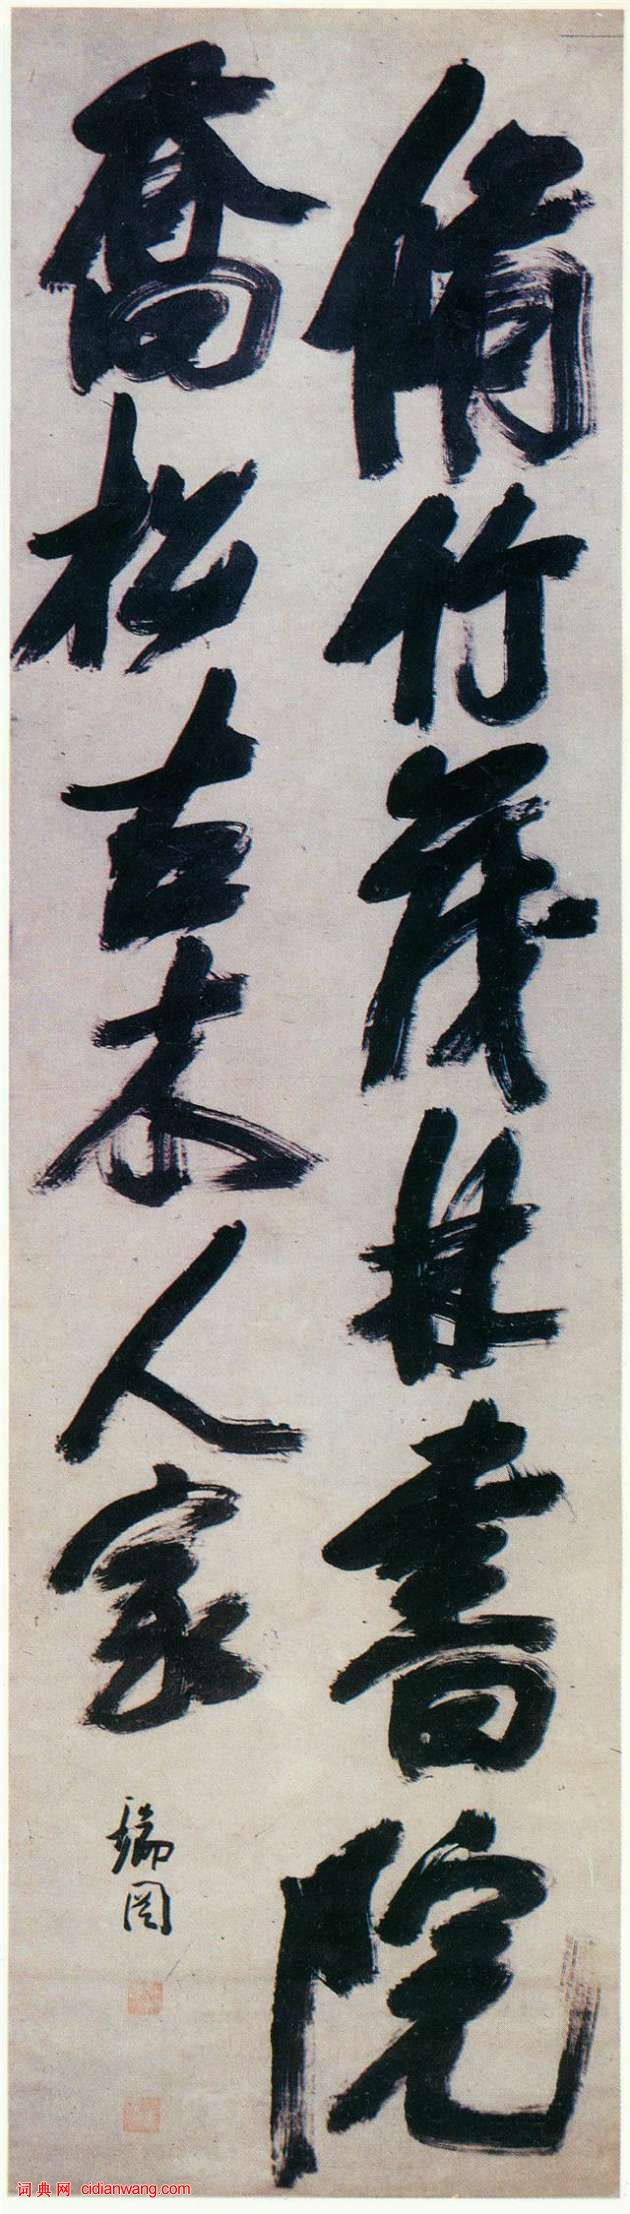 脩竹茂林書院
喬松古木人家
瑞図
词典网 cidianwang.com